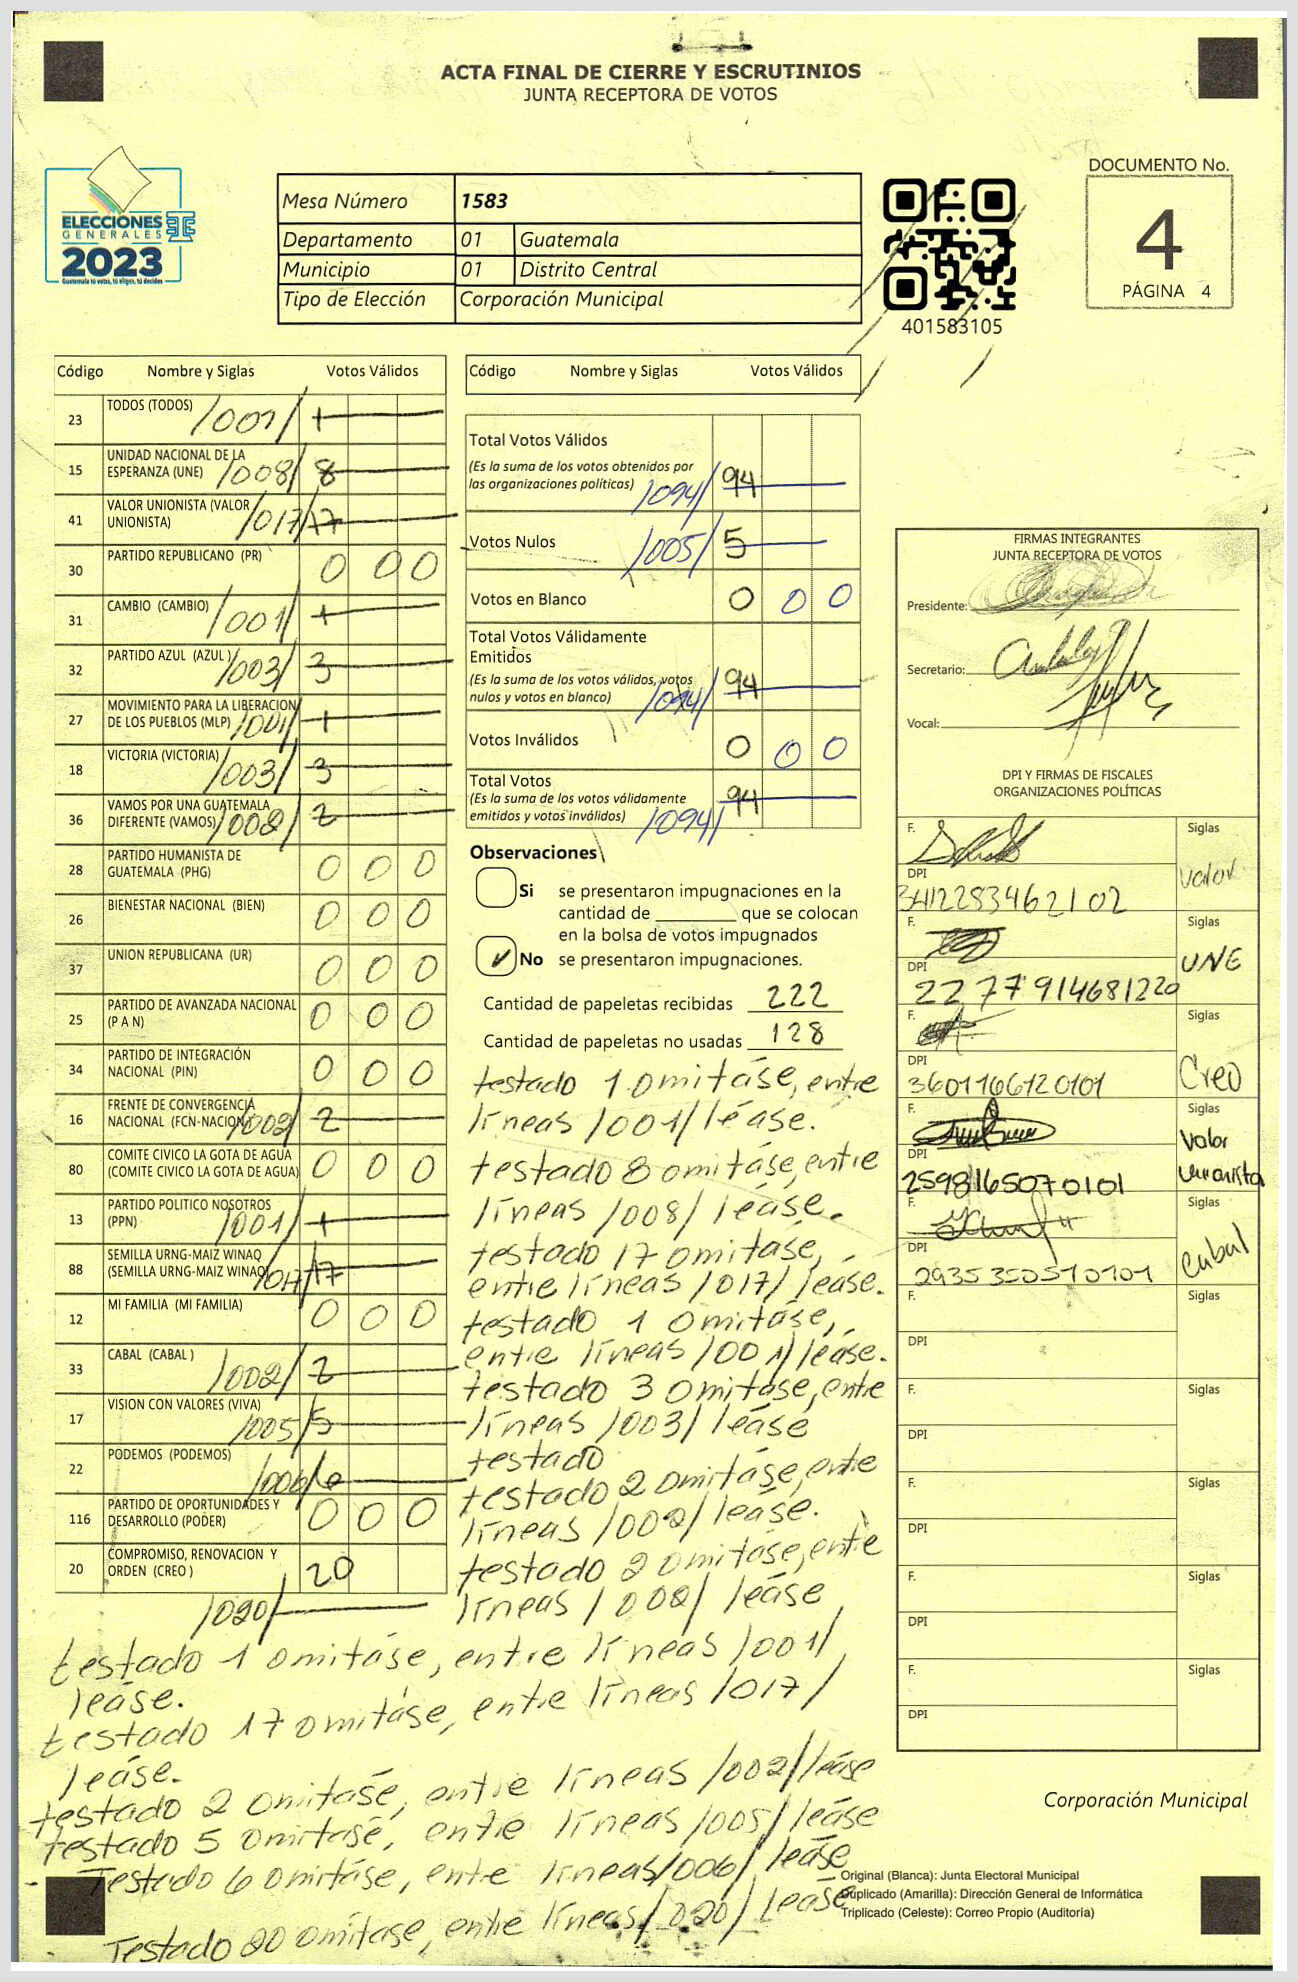 ACTA FINAL DE CIERRE Y ESCRUTINIOS
JUNTA RECEPTORA DE VOTOS
ELECCIONES
GENERALES
2023
Guatemala tú votas, tú eliges, tú decides
Mesa Número 1583
Departamento 01 Guatemala
Municipio 01 Distrito Central
Tipo de Elección Corporación Municipal
401583105
DOCUMENTO No.
4
PÁGINA 4
Código Nombre y Siglas Votos Válidos
23 TODOS (TODOS) /001/ 1
15 UNIDAD NACIONAL DE LA
ESPERANZA (UNE) /008/ 8
41 VALOR UNIONISTA (VALOR
UNIONISTA) /017/ 17
30 PARTIDO REPUBLICANO (PR) 0 0 0
31 CAMBIO (CAMBIO) /001/ 1
32 PARTIDO AZUL (AZUL) /003/ 3
27 MOVIMIENTO PARA LA LIBERACION
DE LOS PUEBLOS (MLP) /001/ 1
18 VICTORIA (VICTORIA) /003/ 3
36 VAMOS POR UNA GUATEMALA
DIFERENTE (VAMOS) /002/ 2
28 PARTIDO HUMANISTA DE
GUATEMALA (PHG) 0 0 0
26 BIENESTAR NACIONAL (BIEN) 0 0 0
37 UNION REPUBLICANA (UR) 0 0 0
25 PARTIDO DE AVANZADA NACIONAL
(P A N) 0 0 0
34 PARTIDO DE INTEGRACIÓN
NACIONAL (PIN) 0 0 0
16 FRENTE DE CONVERGENCIA
NACIONAL (FCN-NACION) /002/ 2
80 COMITE CIVICO LA GOTA DE AGUA
(COMITE CIVICO LA GOTA DE AGUA) 0 0 0
13 PARTIDO POLITICO NOSOTROS
(PPN) /001/ 1
88 SEMILLA URNG-MAIZ WINAQ
(SEMILLA URNG-MAIZ WINAQ) /017/ 17
12 MI FAMILIA (MI FAMILIA) 0 0 0
33 CABAL (CABAL) /002/ 2
17 VISION CON VALORES (VIVA) /005/ 5
22 PODEMOS (PODEMOS) /006/ 6
116 PARTIDO DE OPORTUNIDADES Y
DESARROLLO (PODER) 0 0 0
20 COMPROMISO, RENOVACION Y
ORDEN (CREO) 20
/020/
Código Nombre y Siglas Votos Válidos
Total Votos Válidos
(Es la suma de los votos obtenidos por
las organizaciones políticas) /094/ 94
Votos Nulos /005/ 5
Votos en Blanco 0 0 0
Total Votos Válidamente
Emitidos
(Es la suma de los votos válidos, votos
nulos y votos en blanco) /094/ 94
Votos Inválidos 0 0 0
Total Votos
(Es la suma de los votos válidamente
emitidos y votos inválidos) /094/ 94
Observaciones
Si se presentaron impugnaciones en la
cantidad de ________ que se colocan
en la bolsa de votos impugnados
✓ No se presentaron impugnaciones.
Cantidad de papeletas recibidas 222
Cantidad de papeletas no usadas 128
testado 1 omitáse, entre
líneas /001/ léase.
testado 8 omitáse, entre
líneas /008/ léase.
testado 17 omitase,
entre líneas /017/ léase.
testado 1 omitáse,
entre líneas /001/ léase.
testado 3 omitáse, entre
líneas /003/ léase
testado
testado 2 omitáse, ente
líneas /002/ léase.
testado 2 omitáse, ente
líneas /002/ léase
testado 1 omitáse, entre líneas /001/
leáse.
testado 17 omitáse, entre líneas /017/
leáse.
testado 2 omitasé, entre líneas /002/ leáse
testado 5 omitasé, entre líneas /005/ leáse
Testado 6 omitáse, entre líneas /006/ leáse
Testado 20 omitase, entre líneas /020/ leasé
FIRMAS INTEGRANTES
JUNTA RECEPTORA DE VOTOS
Presidente:
Secretario:
Vocal:
DPI Y FIRMAS DE FISCALES
ORGANIZACIONES POLÍTICAS
F. Siglas
DPI valor
3412283462102
F. Siglas
DPI UNE
2277914681220
F. Siglas
DPI Creo
3601166120101
F. Siglas
DPI Valor
2598165070101 Unionista
F. Siglas
DPI
2935350510101
F. Siglas
DPI
F. Siglas
DPI
F. Siglas
DPI
F. Siglas
DPI
F. Siglas
DPI
Corporación Municipal
Original (Blanca): Junta Electoral Municipal
Duplicado (Amarilla): Dirección General de Informática
Triplicado (Celeste): Correo Propio (Auditoría)